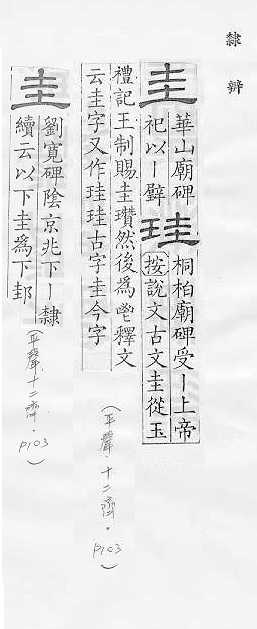 隸辨
圭 華山廟碑
祀以丨璧
珪 桐柏廟碑受丨上帝
按說文古文圭從玉
禮記王制賜圭瓚然後為鬯釋文
云圭字又作珪珪古字圭今字
(平聲.十二齊.
P103)
圭 劉寬碑陰京兆下丨隸
續云以下圭為下邽
(平聲.十二齊.
P103)